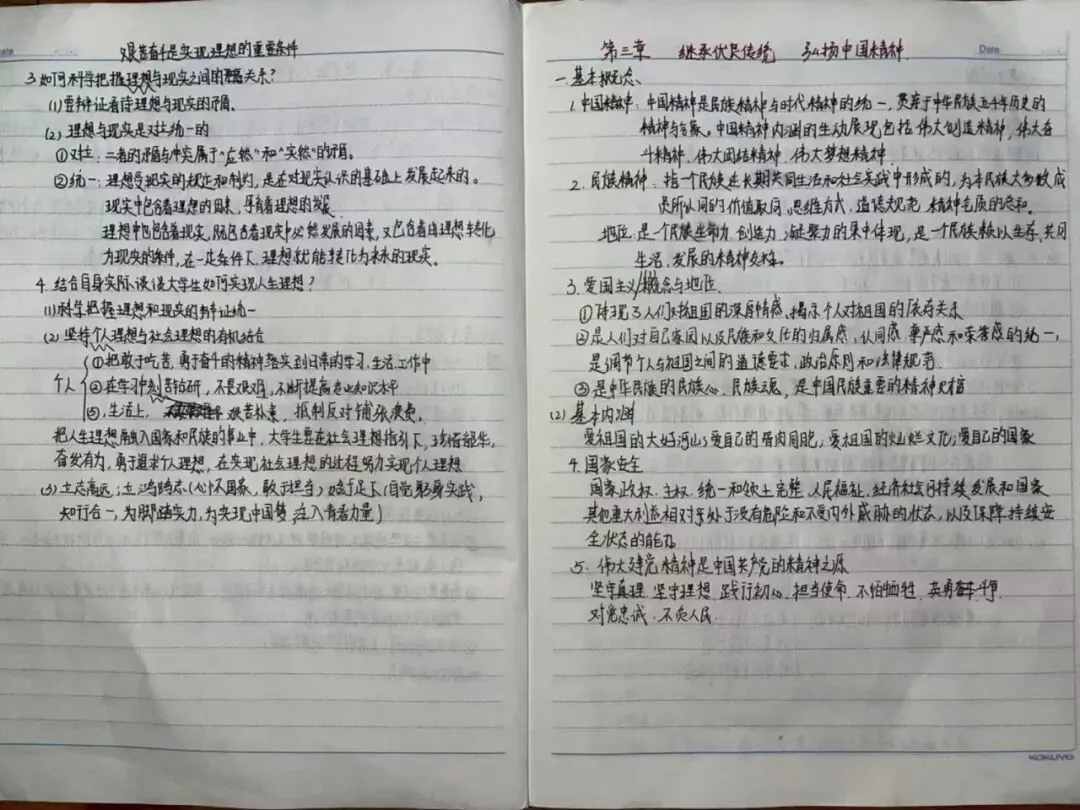 艰苦奋斗是实现理想的重要条件
3.如何科学把握理想与现实之间的矛盾关系?
(1)要辩证看待理想与现实的矛盾.
(2) 理想与现实是对立统一的
①对立:二者的矛盾与冲突属于"应然"和"实然"的矛盾。
②统一:理想受现实的规定和制约,是在对现实认识的基础上发展起来的。
现实中包含着理想的因素,孕育着理想的发展
理想中也包含着现实,既包含着现实中必然发展的因素,又包含着由理想转化
为现实的条件,在一定条件下,理想就能转化为未来的现实。
4. 结合自身实际,谈谈大学生如何实现人生理想?
(1)科学把握理想和现实的辩证统一
(2) 坚持个人理想与社会理想的有机结合
①把敢于吃苦、勇于奋斗的精神落实到日常的学习.生活.工作中
个人
②在学习中刻苦钻研,不畏艰难,不断提高专业知识水平
③,生活上,艰苦朴素,抵制反对铺张浪费.
把人生理想融入国家和民族的事业中,大学生要在社会理想指引下,珍惜韶华,
奋发有为,勇于追求个人理想,在实现社会理想的过程努力实现个人理想
(3)立志高远;立鸿鹄志(心怀国家,敢于担当)始于足下(自觉躬身实践,
知行合一,为脚踏实力,为实现中国梦,注入青春力量)
Date
第三章 继承优良传统 弘扬中国精神
一.基本概念、
1.中国精神:中国精神是民族精神与时代精神的统一,贯穿于中华民族五千年历史的
精神与气象。中国精神内涵的生动展现包括伟大创造精神,伟大奋
斗精神,伟大团结精神,伟大梦想精神
2.民族精神:指一个民族在长期共同生活和社会实践中形成的,为本民族大多数成
员所认同的价值取向.思维方式.道德规范.精神气质的总和.
地位:是一个民族生命力.创造力.凝聚力的集中体现,是一个民族赖以生存、共同
生活、发展的精神支柱。
3.爱国主义/概念与地位、
①体现了人们对祖国的深厚情感、揭示个人对祖国的依存关系
②是人们对自己家园以及民族和文化的归属感,认同感.尊严感和荣誉感的统一,
是调节个人与祖国之间的道德要求,政治原则和法律规范
③是中华民族的民族心、民族之魂,是中国民族重要的精神支柱
(2) 基本内涵
爱祖国的大好河山;爱自己的骨肉同胞;爱祖国的灿烂文化;爱自己的国家
4.国家安全
国家政权.主权.统一和领土完整.人民福祉.经济社会可持续发展和国家
其他重大利益相对处于没有危险和不受内外威胁的状态,以及保障持续安
全状态的能力
5.伟大建党精神是中国共产党的精神之源
坚守真理.坚守理想.践行初心.担当使命.不怕牺牲.英勇奋斗.
对党忠诚.不负人民.
KOKUYO